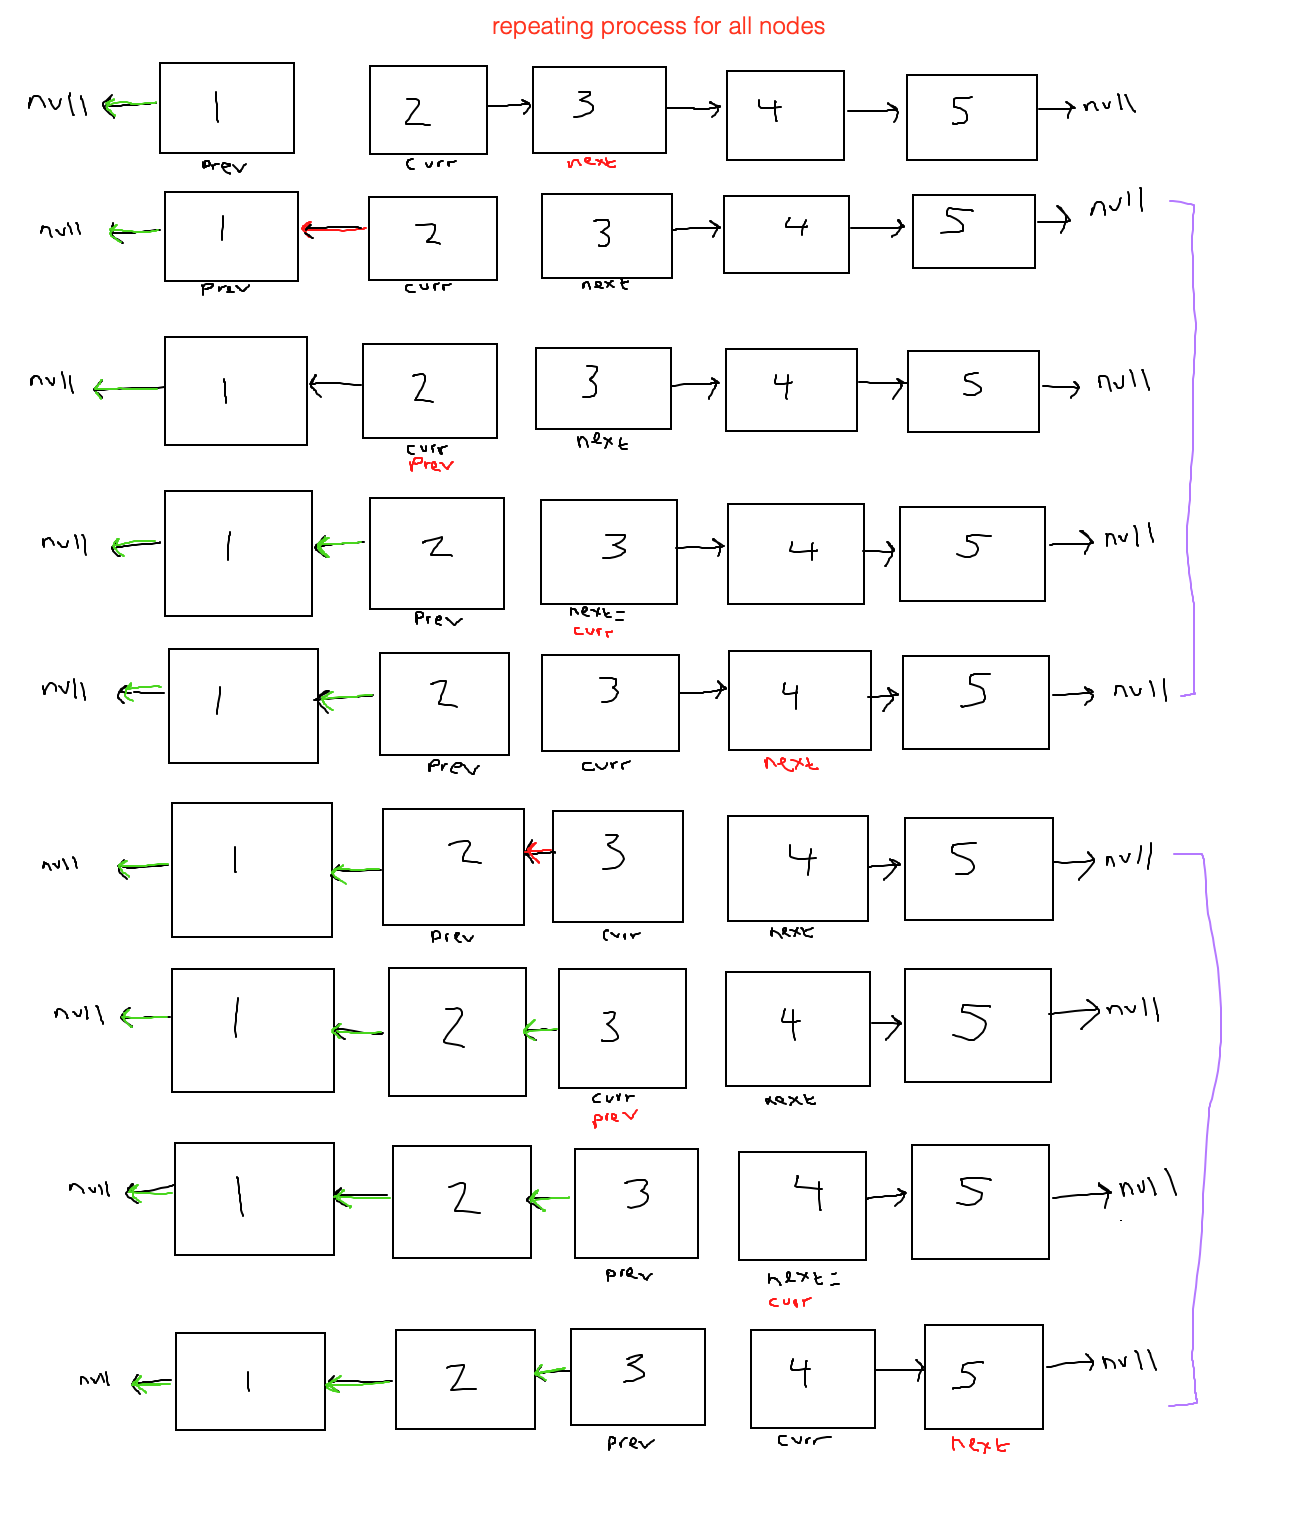 repeating process for all nodes
null 1 2 3 4 5 null
prev curr next
null 1 2 3 4 5 null
prev curr next
null 1 2 3 4 5 null
curr next
prev
null 1 2 3 4 5 null
prev next=
curr
null 1 2 3 4 5 null
prev curr next
null 1 2 3 4 5 null
prev curr next
null 1 2 3 4 5 null
curr next
prev
null 1 2 3 4 5 null
prev next=
curr
null 1 2 3 4 5 null
prev curr next